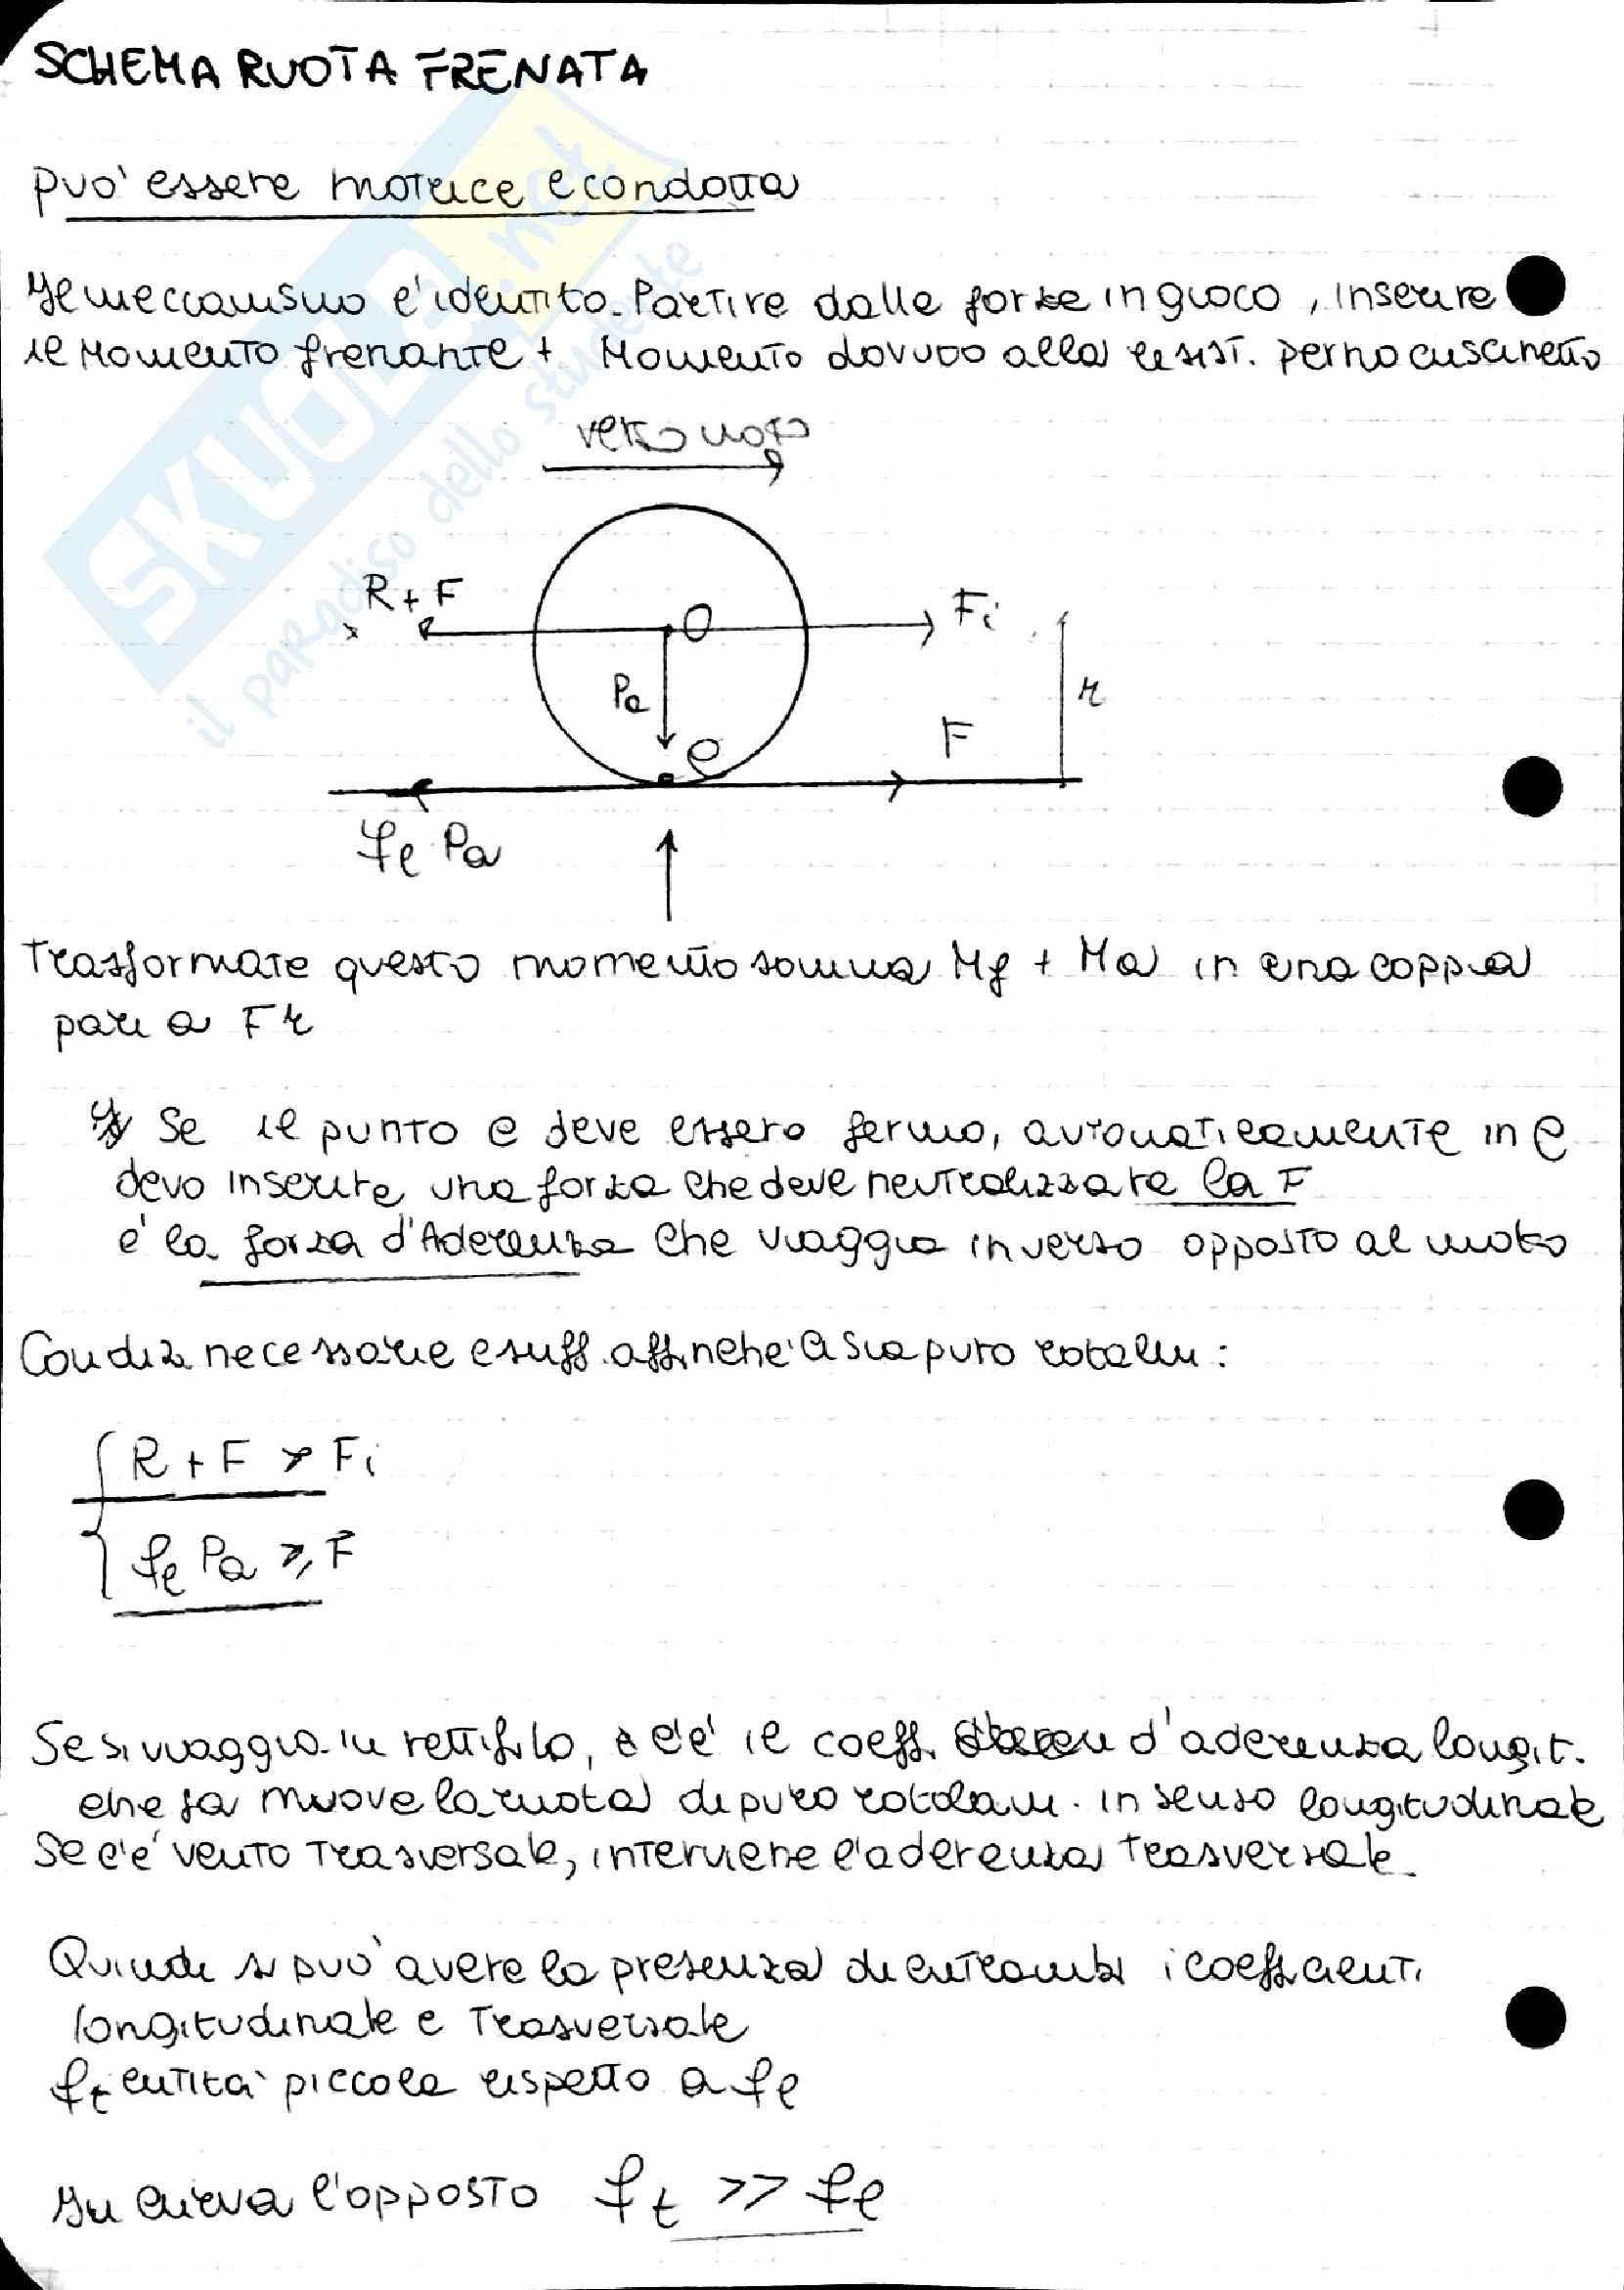 SCHEMA RUOTA FRENATA
può essere motrice e condotta
Il meccanismo e' identico. Partire dalle forze in gioco, inserire
il Momento frenante + Momento dovuto alla resist. perno cuscinetto
verso moto
R + F
O
Fi
Pa
r
F
C
fl Pa
Trasformare questo momento somma Mf + Ma in una coppia
pari a Fr
Se il punto C deve essere fermo, automaticamente in C
devo inserire una forza che deve neutralizzare la F
e' la forza d'Aderenza che viaggia in verso opposto al moto
Condiz necessarie e suff. affinche' ci sia puro rotolam:
R + F > Fi
fl Pa ≥ F
Se si viaggia in rettifilo, c'e' il coeff. d'aderenza longit.
che fa muove la ruota di puro rotolam. in senso longitudinale
Se c'e' vento trasversale, interviene l'aderenza trasversale
Quindi si puo' avere la presenza di entrambi i coefficienti
longitudinale e trasversale
ft entita' piccola rispetto a fl
In curva l'opposto ft >> fl
SKUOLA.net
il paradiso dello studente